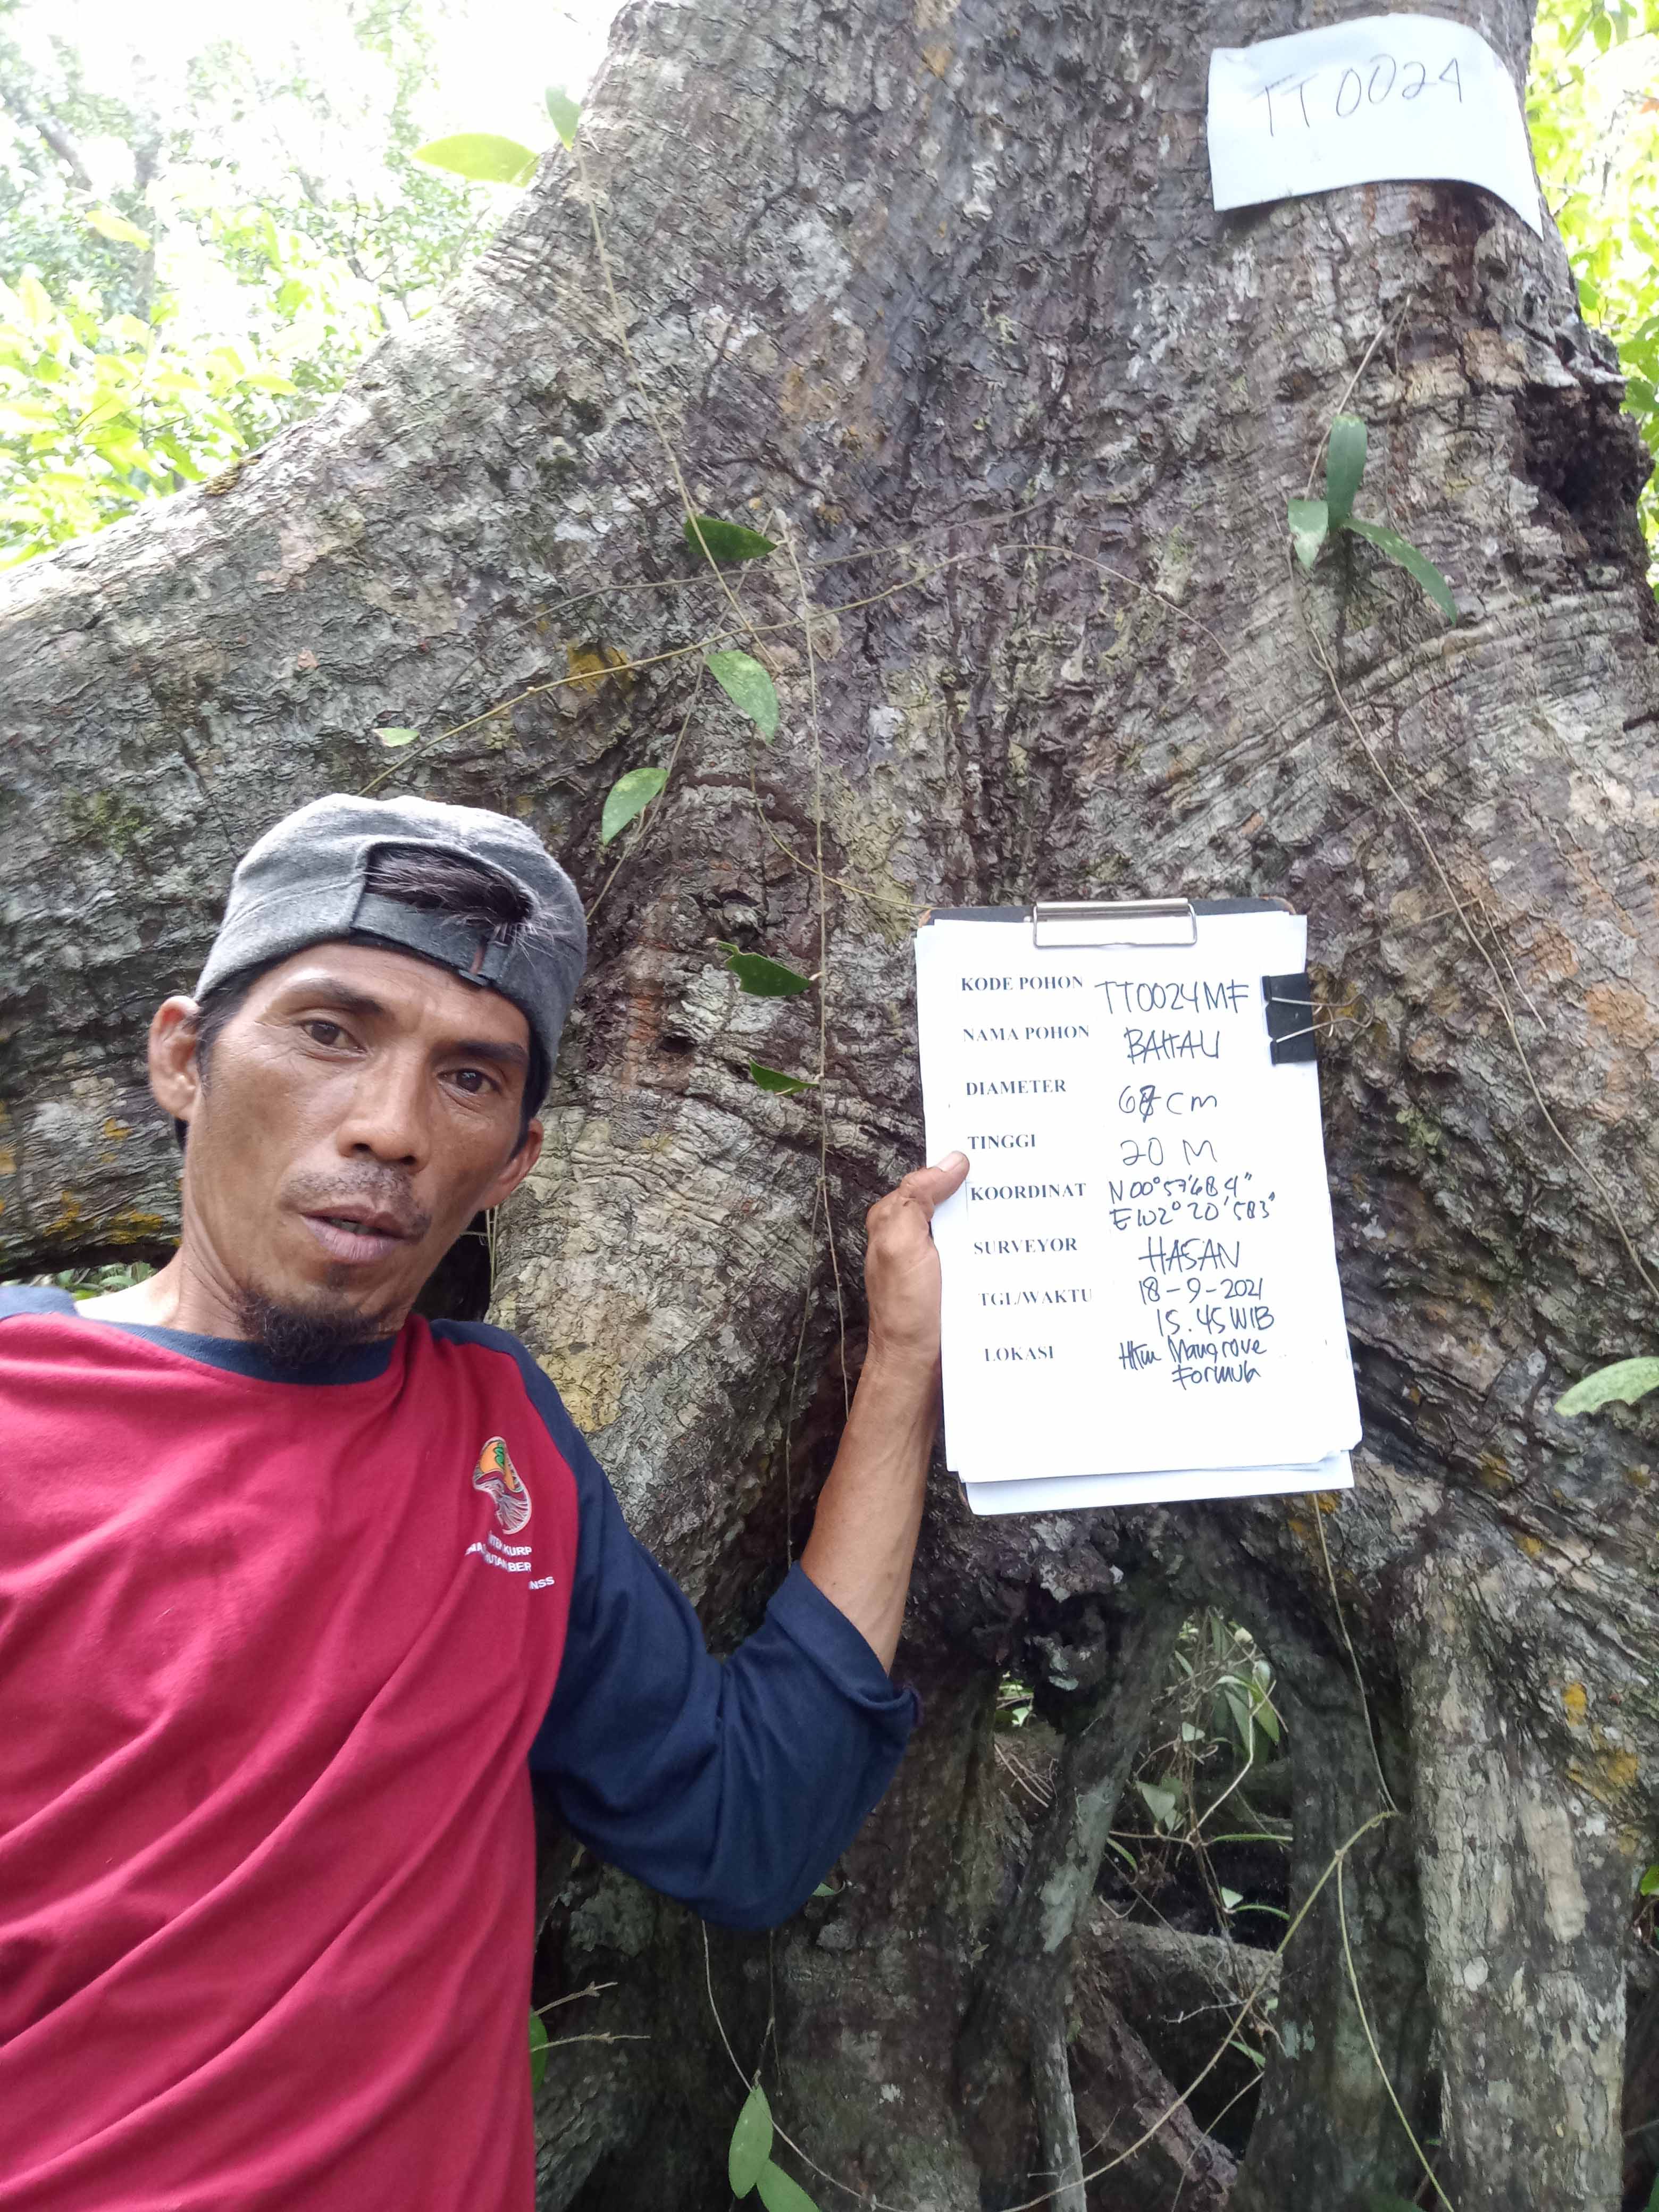 TT0024
KODE POHON TT0024MF
NAMA POHON BAHAU
DIAMETER cm
TINGGI 20 M
KOORDINAT N 00° 57'
E 102° 20' 583"
SURVEYOR HASAN
TGL/WAKTU 18-9-2021
15.45 WIB
LOKASI HKm Mangrove
Formula
KURP
BER
NSS